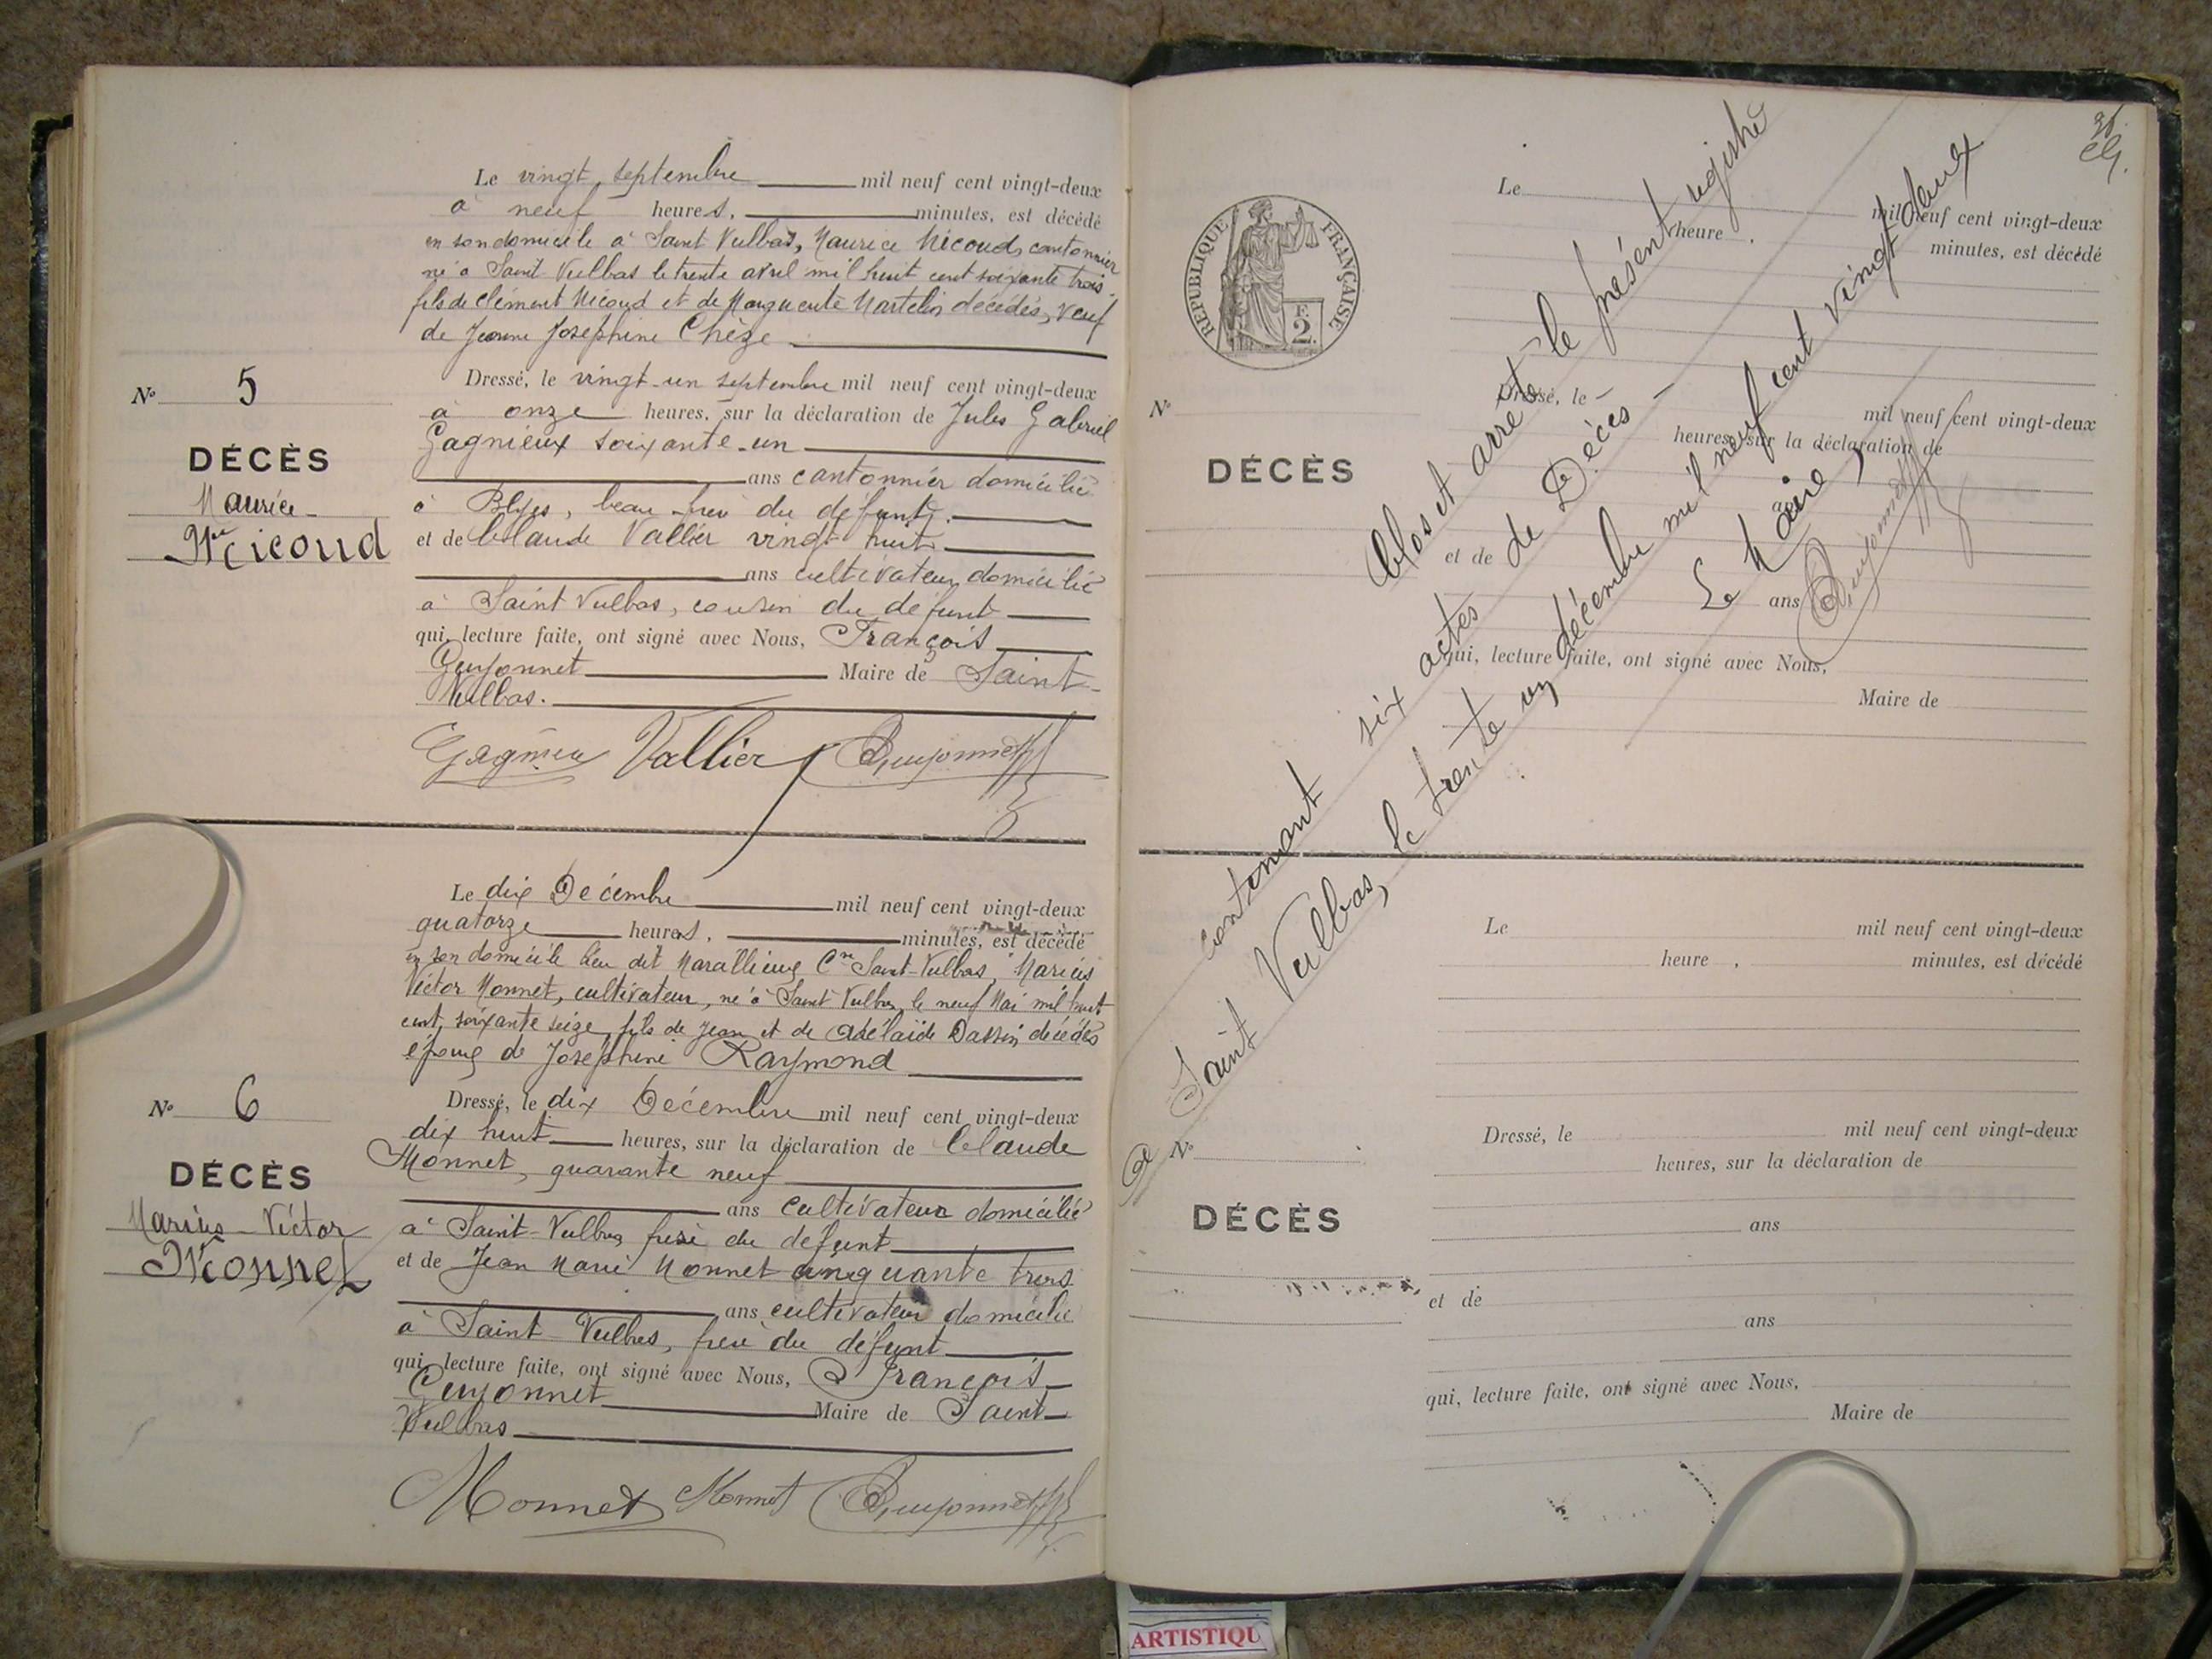 Le vingt septembre mil neuf cent vingt-deux
à neuf heures, minutes, est décédé
en son domicile à Saint Vulbas, Maurice Nicoud, cantonnier
né à Saint Vulbas le trente avril mil huit cent soixante trois
fils de Clément Nicoud et de Marguerite Martelin décédés, veuf
de Jeanne Joséphine Chèze
Nº 5
DÉCÈS
Maurice
Nicoud
Dressé, le vingt-un septembre mil neuf cent vingt-deux
à onze heures, sur la déclaration de Jules Gabriel
Gagnieux soixante-un
ans cantonnier domicilié
à Blyes, beau-frère du défunt,
et de Claude Vallier vingt huit
ans cultivateur domicilié
à Saint Vulbas, cousin du défunt
qui, lecture faite, ont signé avec Nous, François
Guyonnet Maire de Saint-
Vulbas.
Gagnieux Vallier Guyonnet
Le dix Décembre mil neuf cent vingt-deux
quatorze heures, minutes, est décédé
en son domicile lieu dit Marallieux Cne Saint-Vulbas, Marius
Victor Monnet, cultivateur, né à Saint Vulbas le neuf Mai mil huit
cent soixante seize, fils de Jean et de Adélaïde Dassin décédés
époux de Joséphine Raymond
Nº 6
DÉCÈS
Marius-Victor
Monnet
Dressé, le dix Décembre mil neuf cent vingt-deux
dix huit heures, sur la déclaration de Claude
Monnet, quarante neuf
ans cultivateur domicilié
à Saint-Vulbas frère du défunt
et de Jean Marie Monnet cinquante trois
ans cultivateur domicilié
à Saint Vulbas, frère du défunt
qui, lecture faite, ont signé avec Nous, François
Guyonnet Maire de Saint-
Vulbas
Monnet Monnet Guyonnet
RÉPUBLIQUE FRANÇAISE
F.
2.
Le mil neuf cent vingt-deux
heure , minutes, est décédé
Nº
DÉCÈS
Dressé, le mil neuf cent vingt-deux
heures, sur la déclaration de
et de
ans
qui, lecture faite, ont signé avec Nous,
Maire de
Clos et arrêté le présent registre
de Décès
contenant six actes
Saint Vulbas, le trente un décembre mil neuf cent vingt deux
Le Maire,
Guyonnet
Le mil neuf cent vingt-deux
heure , minutes, est décédé
Nº
DÉCÈS
Dressé, le mil neuf cent vingt-deux
heures, sur la déclaration de
ans
et de
ans
qui, lecture faite, ont signé avec Nous,
Maire de
ARTISTIQU